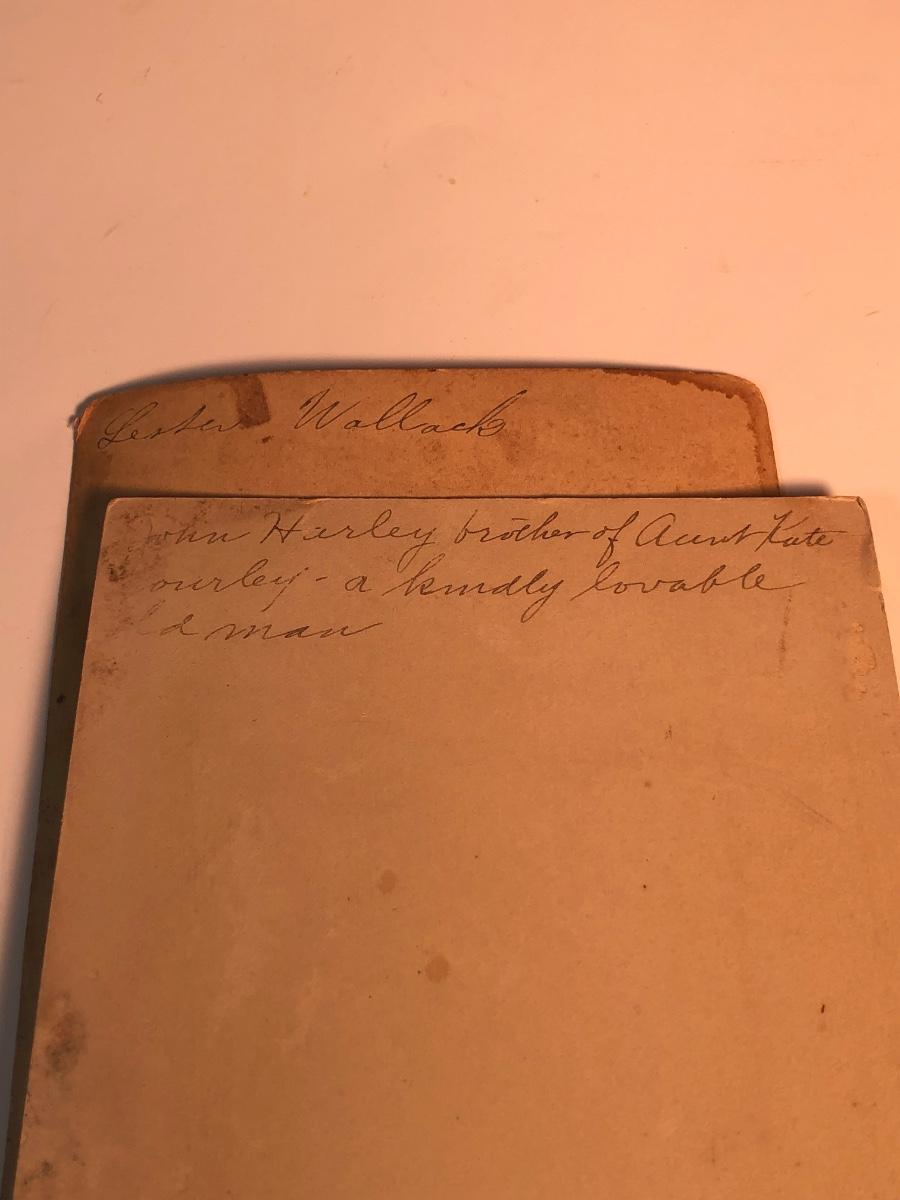 Lester Wallack
John Hurley brother of Aunt Kate
ourley - a kindly lovable
ld man